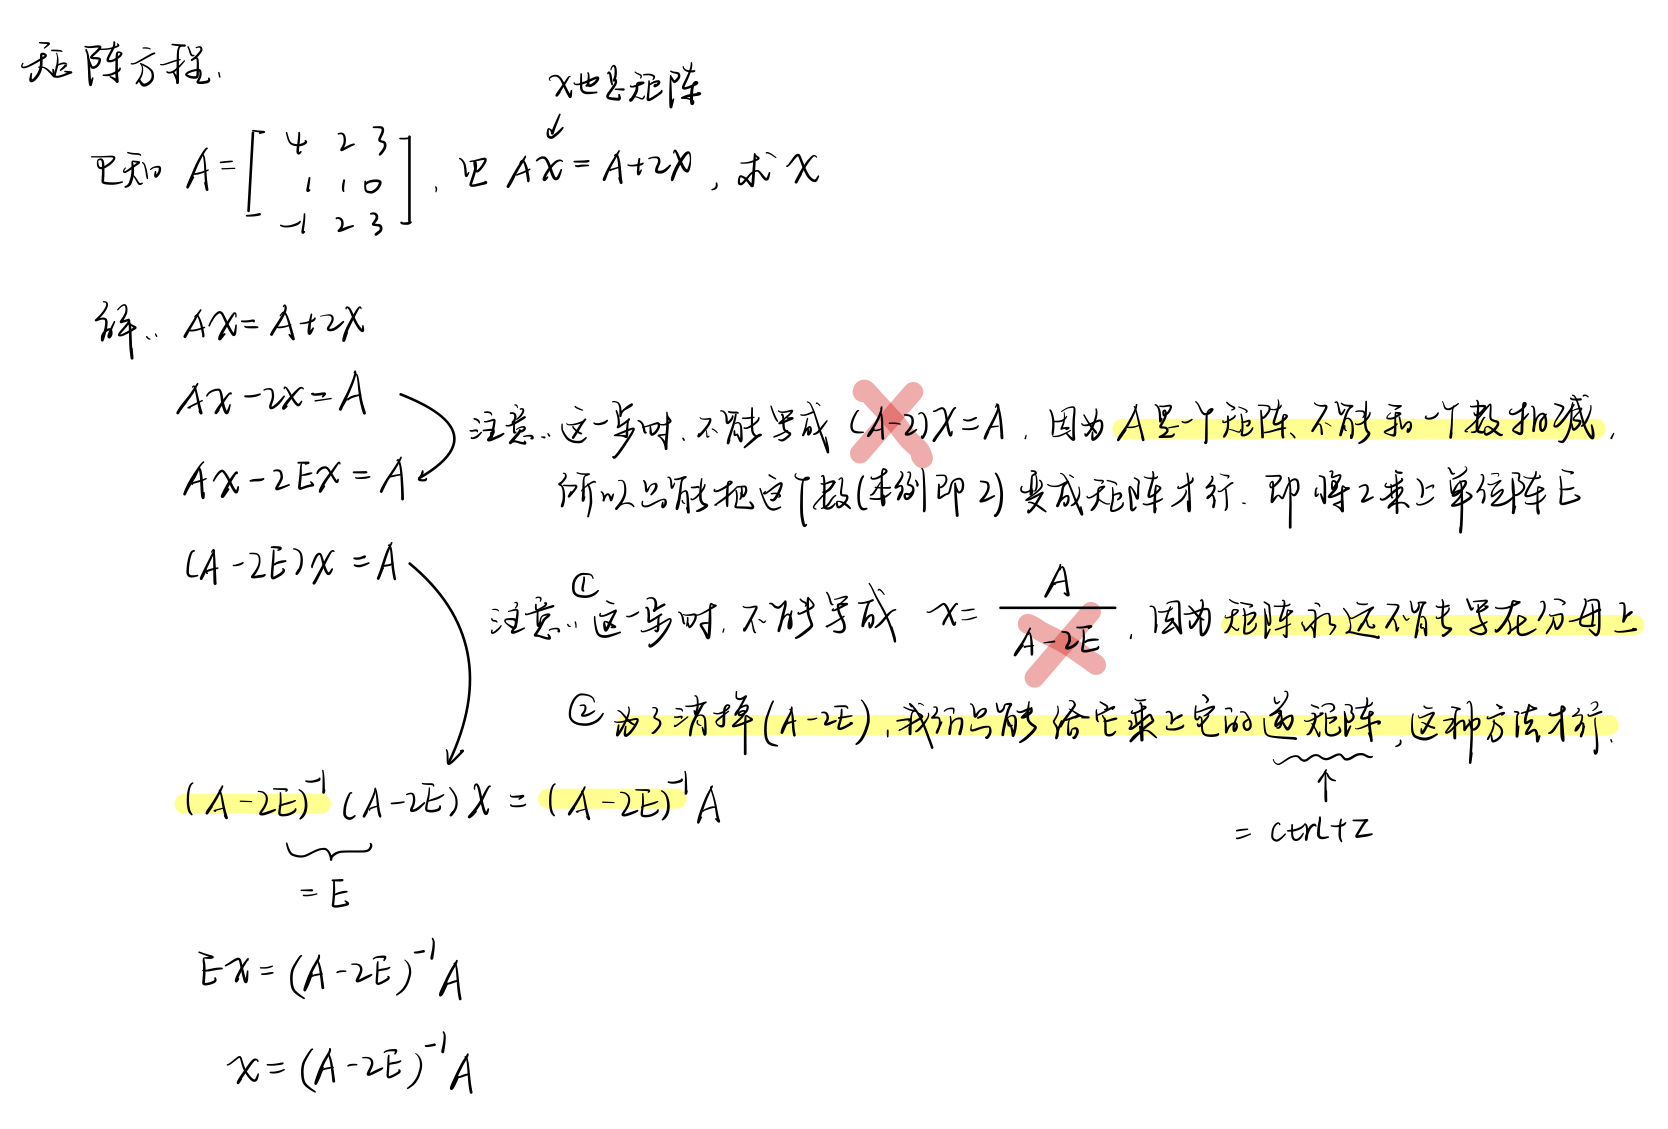 矩阵方程.
x也是矩阵
↓
已知 A = [4 2 3; 1 1 0; -1 2 3], 且 AX = A+2X, 求 X
解: AX = A+2X
AX-2X = A
注意: 这一步时, 不能写成 (A-2)X = A, 因为 A是一个矩阵、不能和一个数相减,
AX-2EX = A
所以只能把这个数(本例即2)变成矩阵才行. 即将2乘上单位阵E
(A-2E)X = A
注意: ①这一步时, 不能写成 x = A/(A-2E), 因为矩阵永远不能写在分母上
②为了消掉(A-2E), 我们只能给它乘上它的逆矩阵, 这种方法才行.
↑
= ctrl+Z
(A-2E)⁻¹(A-2E)X = (A-2E)⁻¹A
= E
EX = (A-2E)⁻¹A
x = (A-2E)⁻¹A